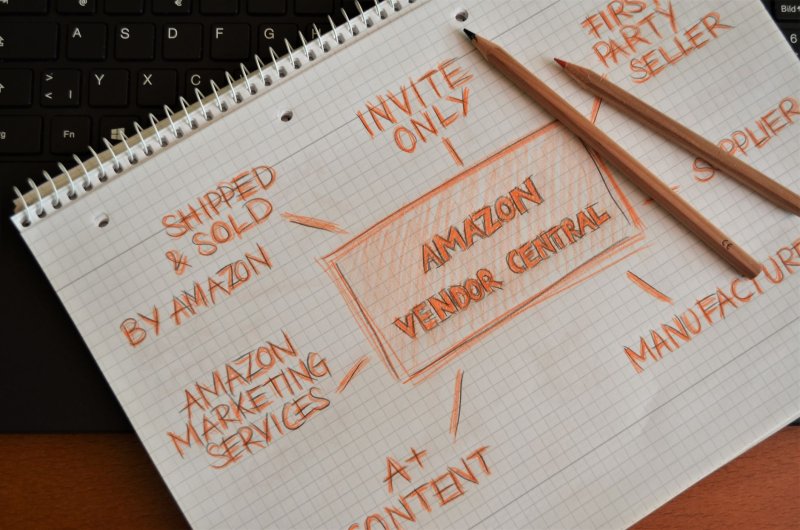 INVITE
ONLY
FIRST
PARTY
SELLER
SHIPPED
& SOLD
BY AMAZON
AMAZON
VENDOR CENTRAL
SUPPLIER
MANUFACTUR
AMAZON
MARKETING
SERVICES
A+
CONTENT
A S D F G H
Y X C
Fn
Bild
6